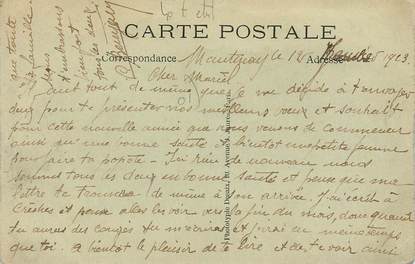 CARTE POSTALE
Correspondance
Adresse
Mautguay le 12 1913
Cher Marcel
tout de même que je me décide à t'envoyer
deux pour te présenter nos meilleurs vœux et souhaits
pour cette nouvelle année que nous venons de commencer
ainsi qu'une bonne santé et bientôt une petite femme
pour faire ta popote - J'ai rien de nouveau nous
sommes tous les deux en bonne santé et pense que ma
lettre te trouvera de même à son arrivée. J'ai écrit à
Crèches et pense aller les voir vers la fin du mois, donc quand
tu auras des congés tu m'écriras et j'irai en même temps
que toi. a bientôt le plaisir de te lire et de te voir ainsi
que toute
la famille
Nous
t'embrassons
tous les deux